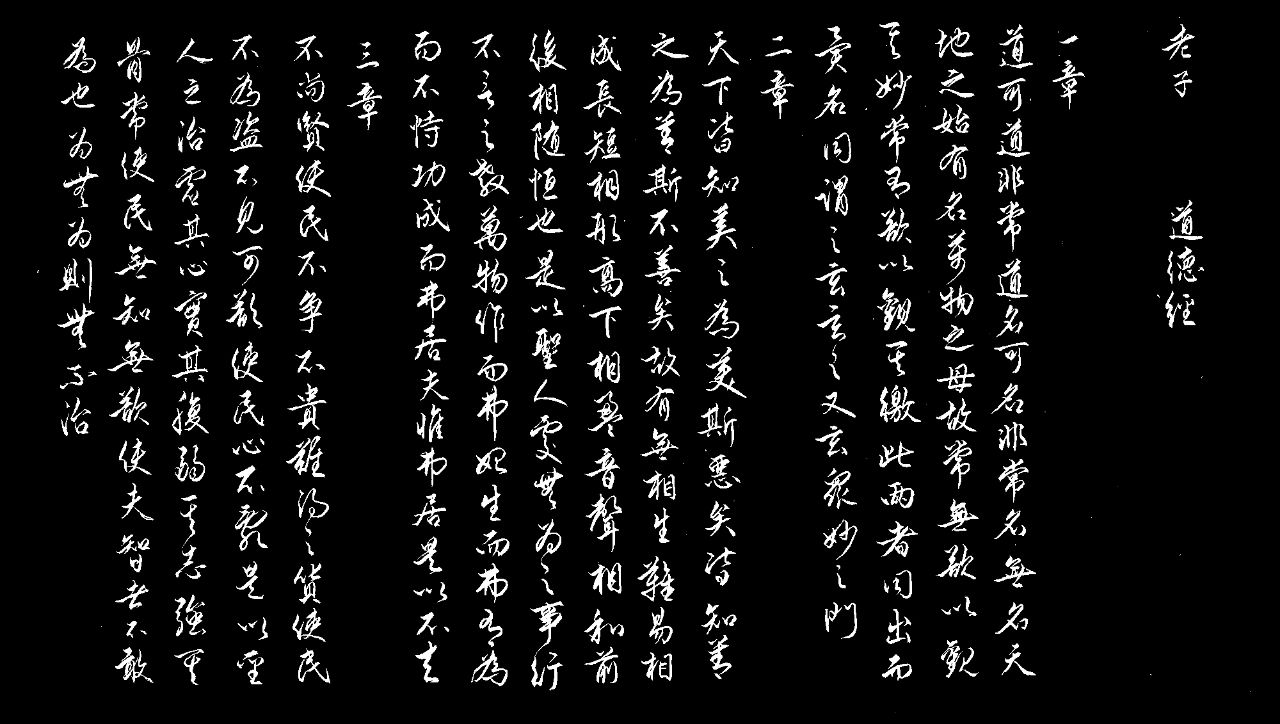 老子 道德經
一章
道可道非常道名可名非常名無名天
地之始有名萬物之母故常無欲以觀
其妙常有欲以觀其繳此兩者同出而
異名同謂之玄玄之又玄眾妙之門
二章
天下皆知美之為美斯惡矣皆知善
之為善斯不善矣故有無相生難易相
成長短相形高下相盈音聲相和前
後相隨恒也是以聖人處無為之事行
不言之教萬物作而弗始生而弗有為
而不恃功成而弗居夫惟弗居是以不去
三章
不尚賢使民不爭不貴難得之貨使民
不為盜不見可欲使民心不亂是以聖
人之治虛其心實其腹弱其志強其
骨常使民無知無欲使夫智者不敢
為也为無为則無不治